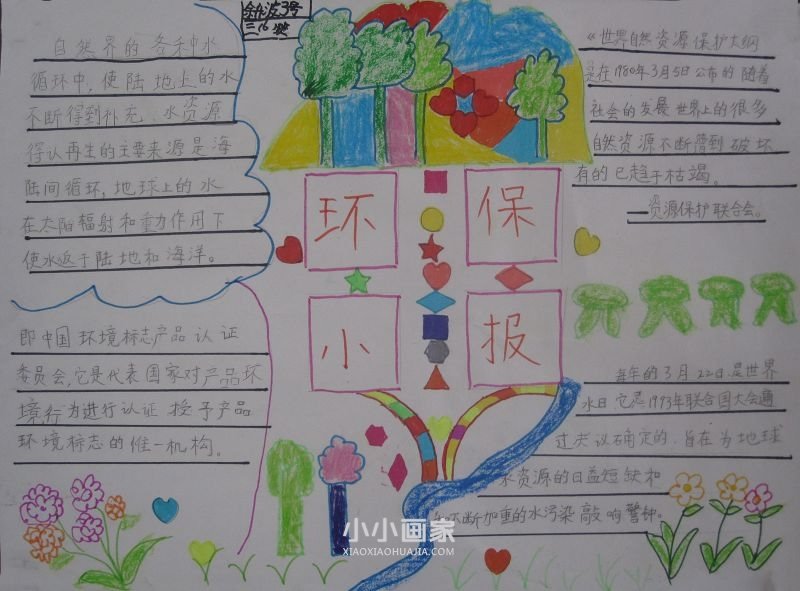 3号
二16
自然界的各种水
循环中,使陆地上的水
不断得到补充,水资源
得认再生的主要来源是海
陆间循环,地球上的水
在太阳辐射和重力作用下
使水返于陆地和海洋。
即中国环境标志产品认证
委员会,它是代表国家对产品环
境行为进行认证授予产品
环境标志的惟一机构。
环保
小报
《世界自然资源保护大纲
是在1980年3月5日公布的随着
社会的发展世界上的很多
自然资源不断遭到破坏
有的已趋于枯竭。
资源保护联合会。
每年的3月22日是世界
水日它是1993年联合国大会通
过决议确定的,旨在为地球
水资源的日益短缺和
不断加重的水污染敲响警钟。
小小画家
XIAOXIAOHUAJIA.COM